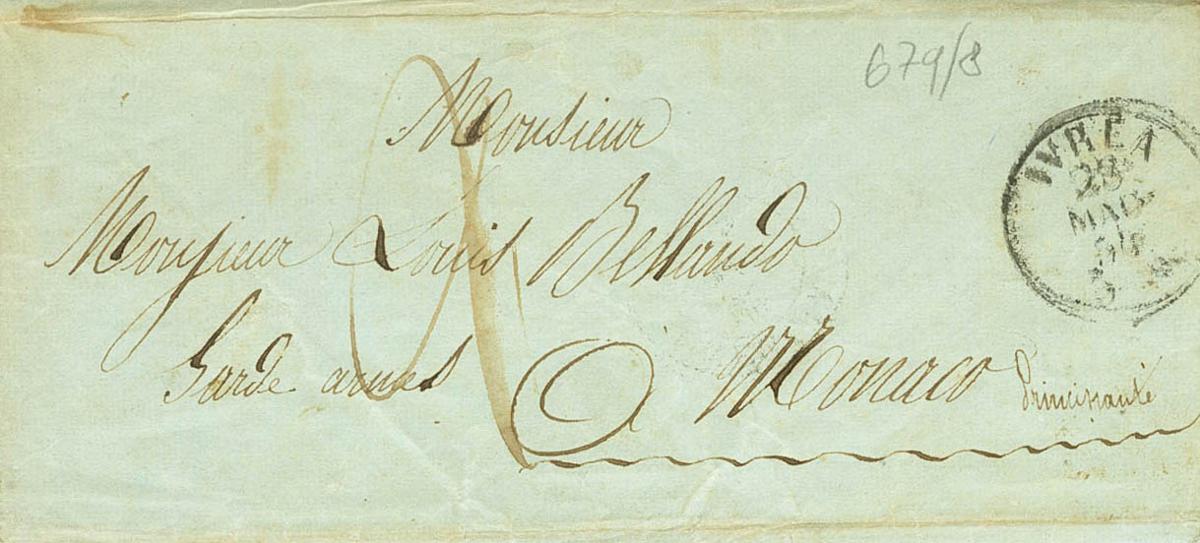 679/8
Monsieur
Monsieur Louis Bellando
Garde armes
à Monaco Principauté
IVREA
28
MAG.